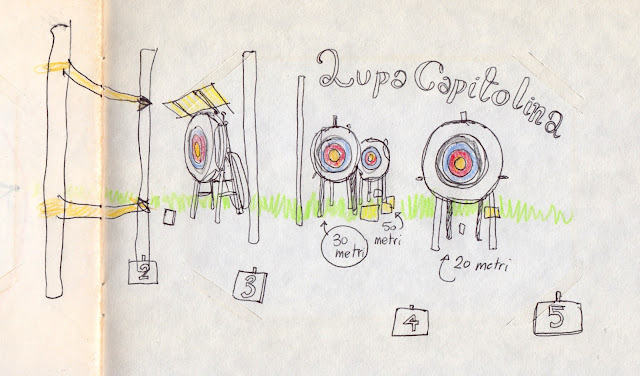 Lupa Capitolina
30
metri
50
metri
20 metri
2
3
4
5